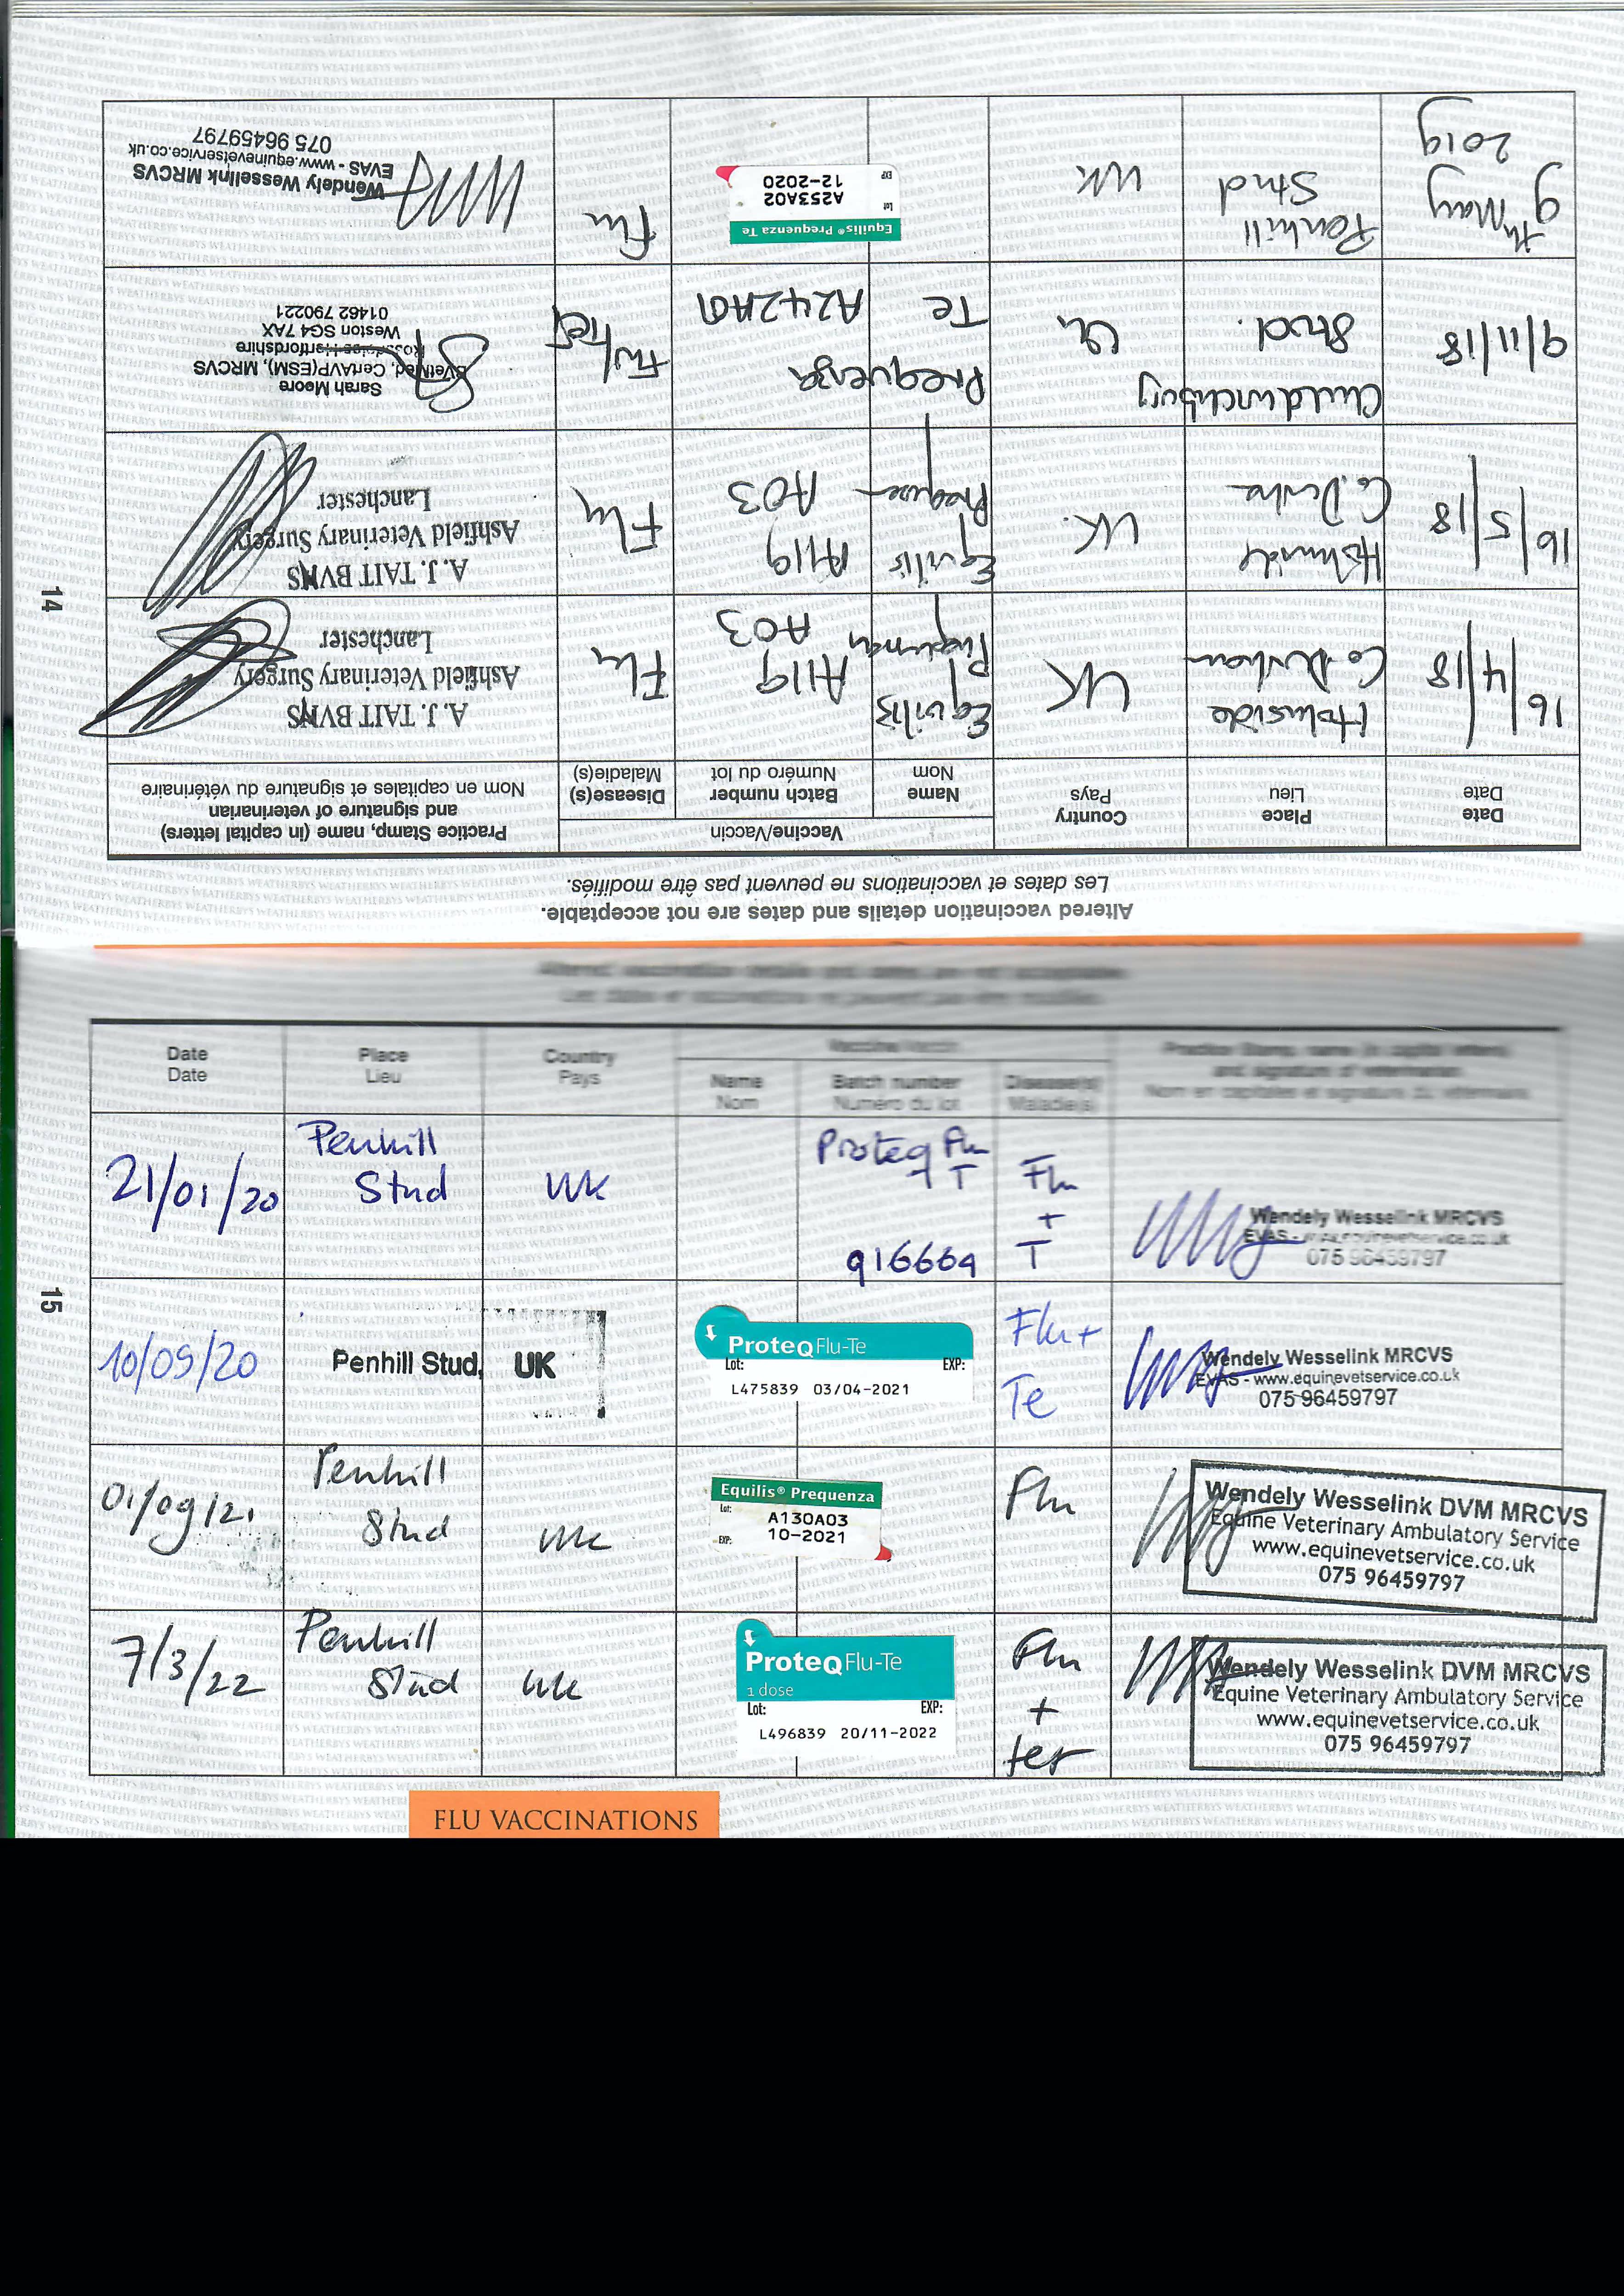 Altered vaccination details and dates are not acceptable.
Les dates et vaccinations ne peuvent pas être modifiés.
Date
Date
Place
Lieu
Country
Pays
Vaccine/Vaccin
Name
Nom
Batch number
Numéro du lot
Disease(s)
Maladie(s)
Practice Stamp, name (in capital letters)
and signature of veterinarian
Nom en capitales et signature du vétérinaire
16/4/18
Holmside
Co Durham
UK
Equilis
A119
A03
Flu
A. J. TAIT BVMS
Ashfield Veterinary Surgery
Lanchester
16/5/18
Holmside
Co. Durha
UK.
Equilis
Prequen
A119
A03
Flu
A. J. TAIT BVMS
Ashfield Veterinary Surgery
Lanchester
9/11/18
Childwickbury
Stud.
Prequenza
Te
A242A01
Flu/Tet
Sarah Moore
BVetMed, CertAVP(ESM), MRCVS
Hertfordshire
Weston SG4 7AX
01462 790221
9th May
2019
Penhill
Stud
UK
Equilis® Prequenza Te
Lot
A253A02
EXP
12-2020
Flu
Wendely Wesselink MRCVS
EVAS - www.equinevetservice.co.uk
075 96459797
14
Altered vaccination details and dates are not acceptable.
Les dates et vaccinations ne peuvent pas être modifiés.
Date
Date
Place
Lieu
Country
Pays
Vaccine/Vaccin
Name
Nom
Batch number
Numéro du lot
Disease(s)
Maladie(s)
Practice Stamp, name (in capital letters)
and signature of veterinarian
Nom en capitales et signature du vétérinaire
21/01/20
Penhill
Stud
UK
Proteq Flu
+ T
916669
Flu
+
T
Wendely Wesselink MRCVS
EVAS - www.equinevetservice.co.uk
075 96459797
10/09/20
Penhill Stud,
UK
ProteqFlu-Te
Lot: EXP:
L475839 03/04-2021
Flu +
Te
Wendely Wesselink MRCVS
EVAS - www.equinevetservice.co.uk
075 96459797
01/09/21
Penhill
Stud
UK
Equilis® Prequenza
Lot:
A130A03
EXP:
10-2021
Flu
Wendely Wesselink DVM MRCVS
Equine Veterinary Ambulatory Service
www.equinevetservice.co.uk
075 96459797
7/3/22
Penhill
Stud
UK
ProteqFlu-Te
1 dose
Lot: EXP:
L496839 20/11-2022
Flu
+
tet
Wendely Wesselink DVM MRCVS
Equine Veterinary Ambulatory Service
www.equinevetservice.co.uk
075 96459797
15
FLU VACCINATIONS